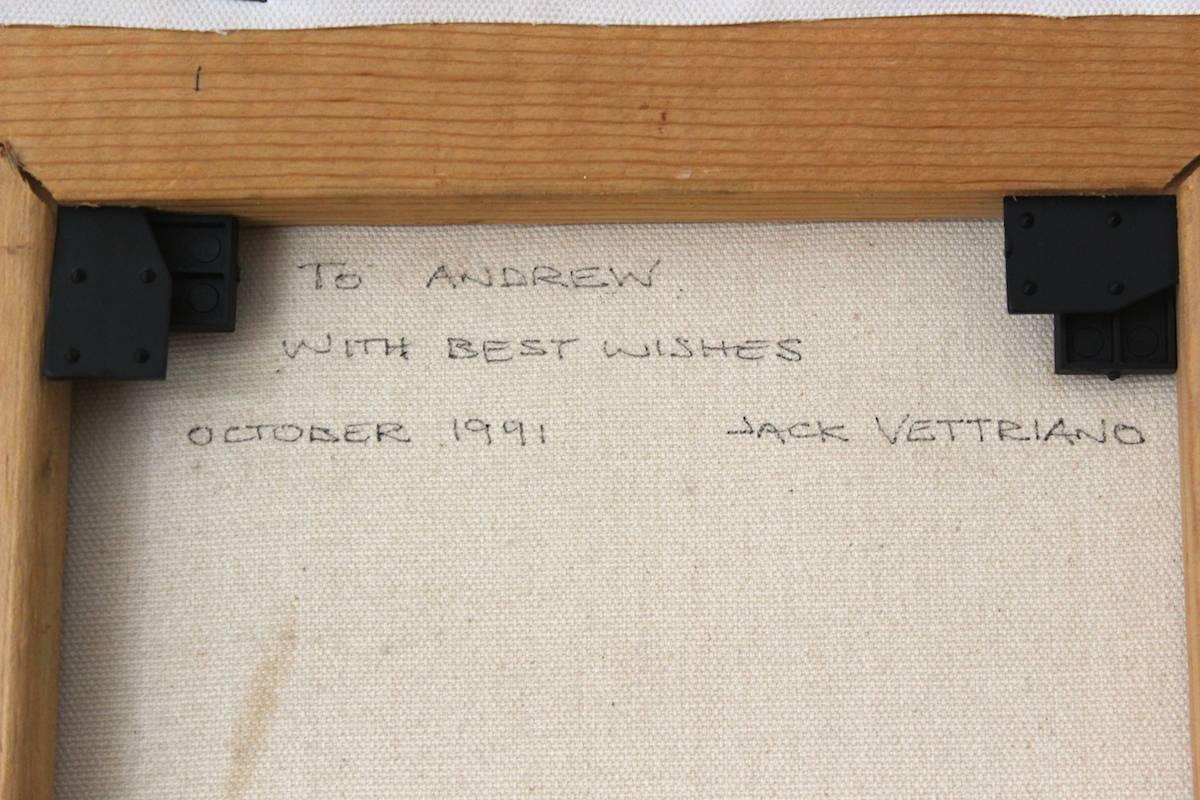 To ANDREW
WITH BEST WISHES
OCTOBER 1991 JACK VETTRIANO